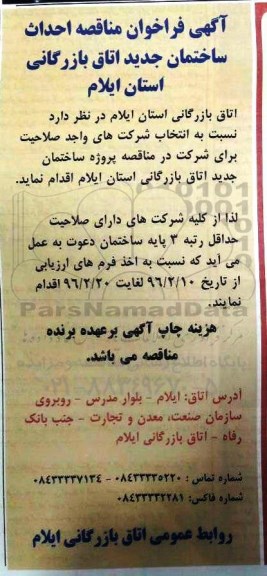 آگهی فراخوان مناقصه احداث
ساختمان جدید اتاق بازرگانی
استان ایلام
اتاق بازرگانی استان ایلام در نظر دارد
نسبت به انتخاب شرکت های واجد صلاحیت
برای شرکت در مناقصه پروژه ساختمان
جدید اتاق بازرگانی استان ایلام اقدام نماید.
لذا از کلیه شرکت های دارای صلاحیت
حداقل رتبه ۳ پایه ساختمان دعوت به عمل
می آید که نسبت به اخذ فرم های ارزیابی
از تاریخ ۹۶/۲/۱۰ لغایت ۹۶/۲/۲۰ اقدام
نمایند.
ParsNamadData
هزینه چاپ آگهی برعهده برنده
مناقصه می باشد.
آدرس اتاق: ایلام - بلوار مدرس - روبروی
سازمان صنعت، معدن و تجارت - جنب بانک
رفاه - اتاق بازرگانی ایلام
شماره تماس : ۰۸۴۳۳۳۳۵۲۲۰ - ۰۸۴۳۳۳۳۷۱۳۴
شماره فاکس: ۰۸۴۳۳۳۳۲۲۸۱
روابط عمومی اتاق بازرگانی ایلام